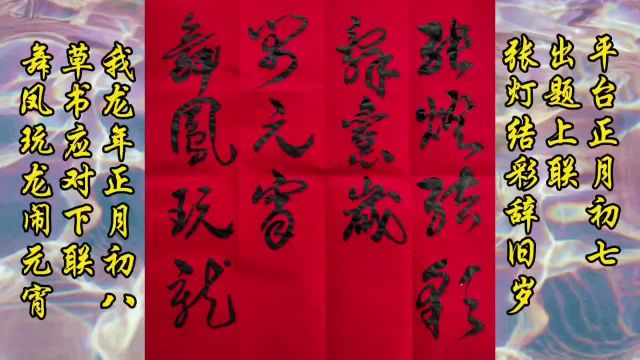 平台正月初七
出题上联
张灯结彩辞旧岁
張燈結彩
辭舊歲
舞鳳玩龍
鬧元宵
我龙年正月初八
草书应对下联
舞凤玩龙闹元宵